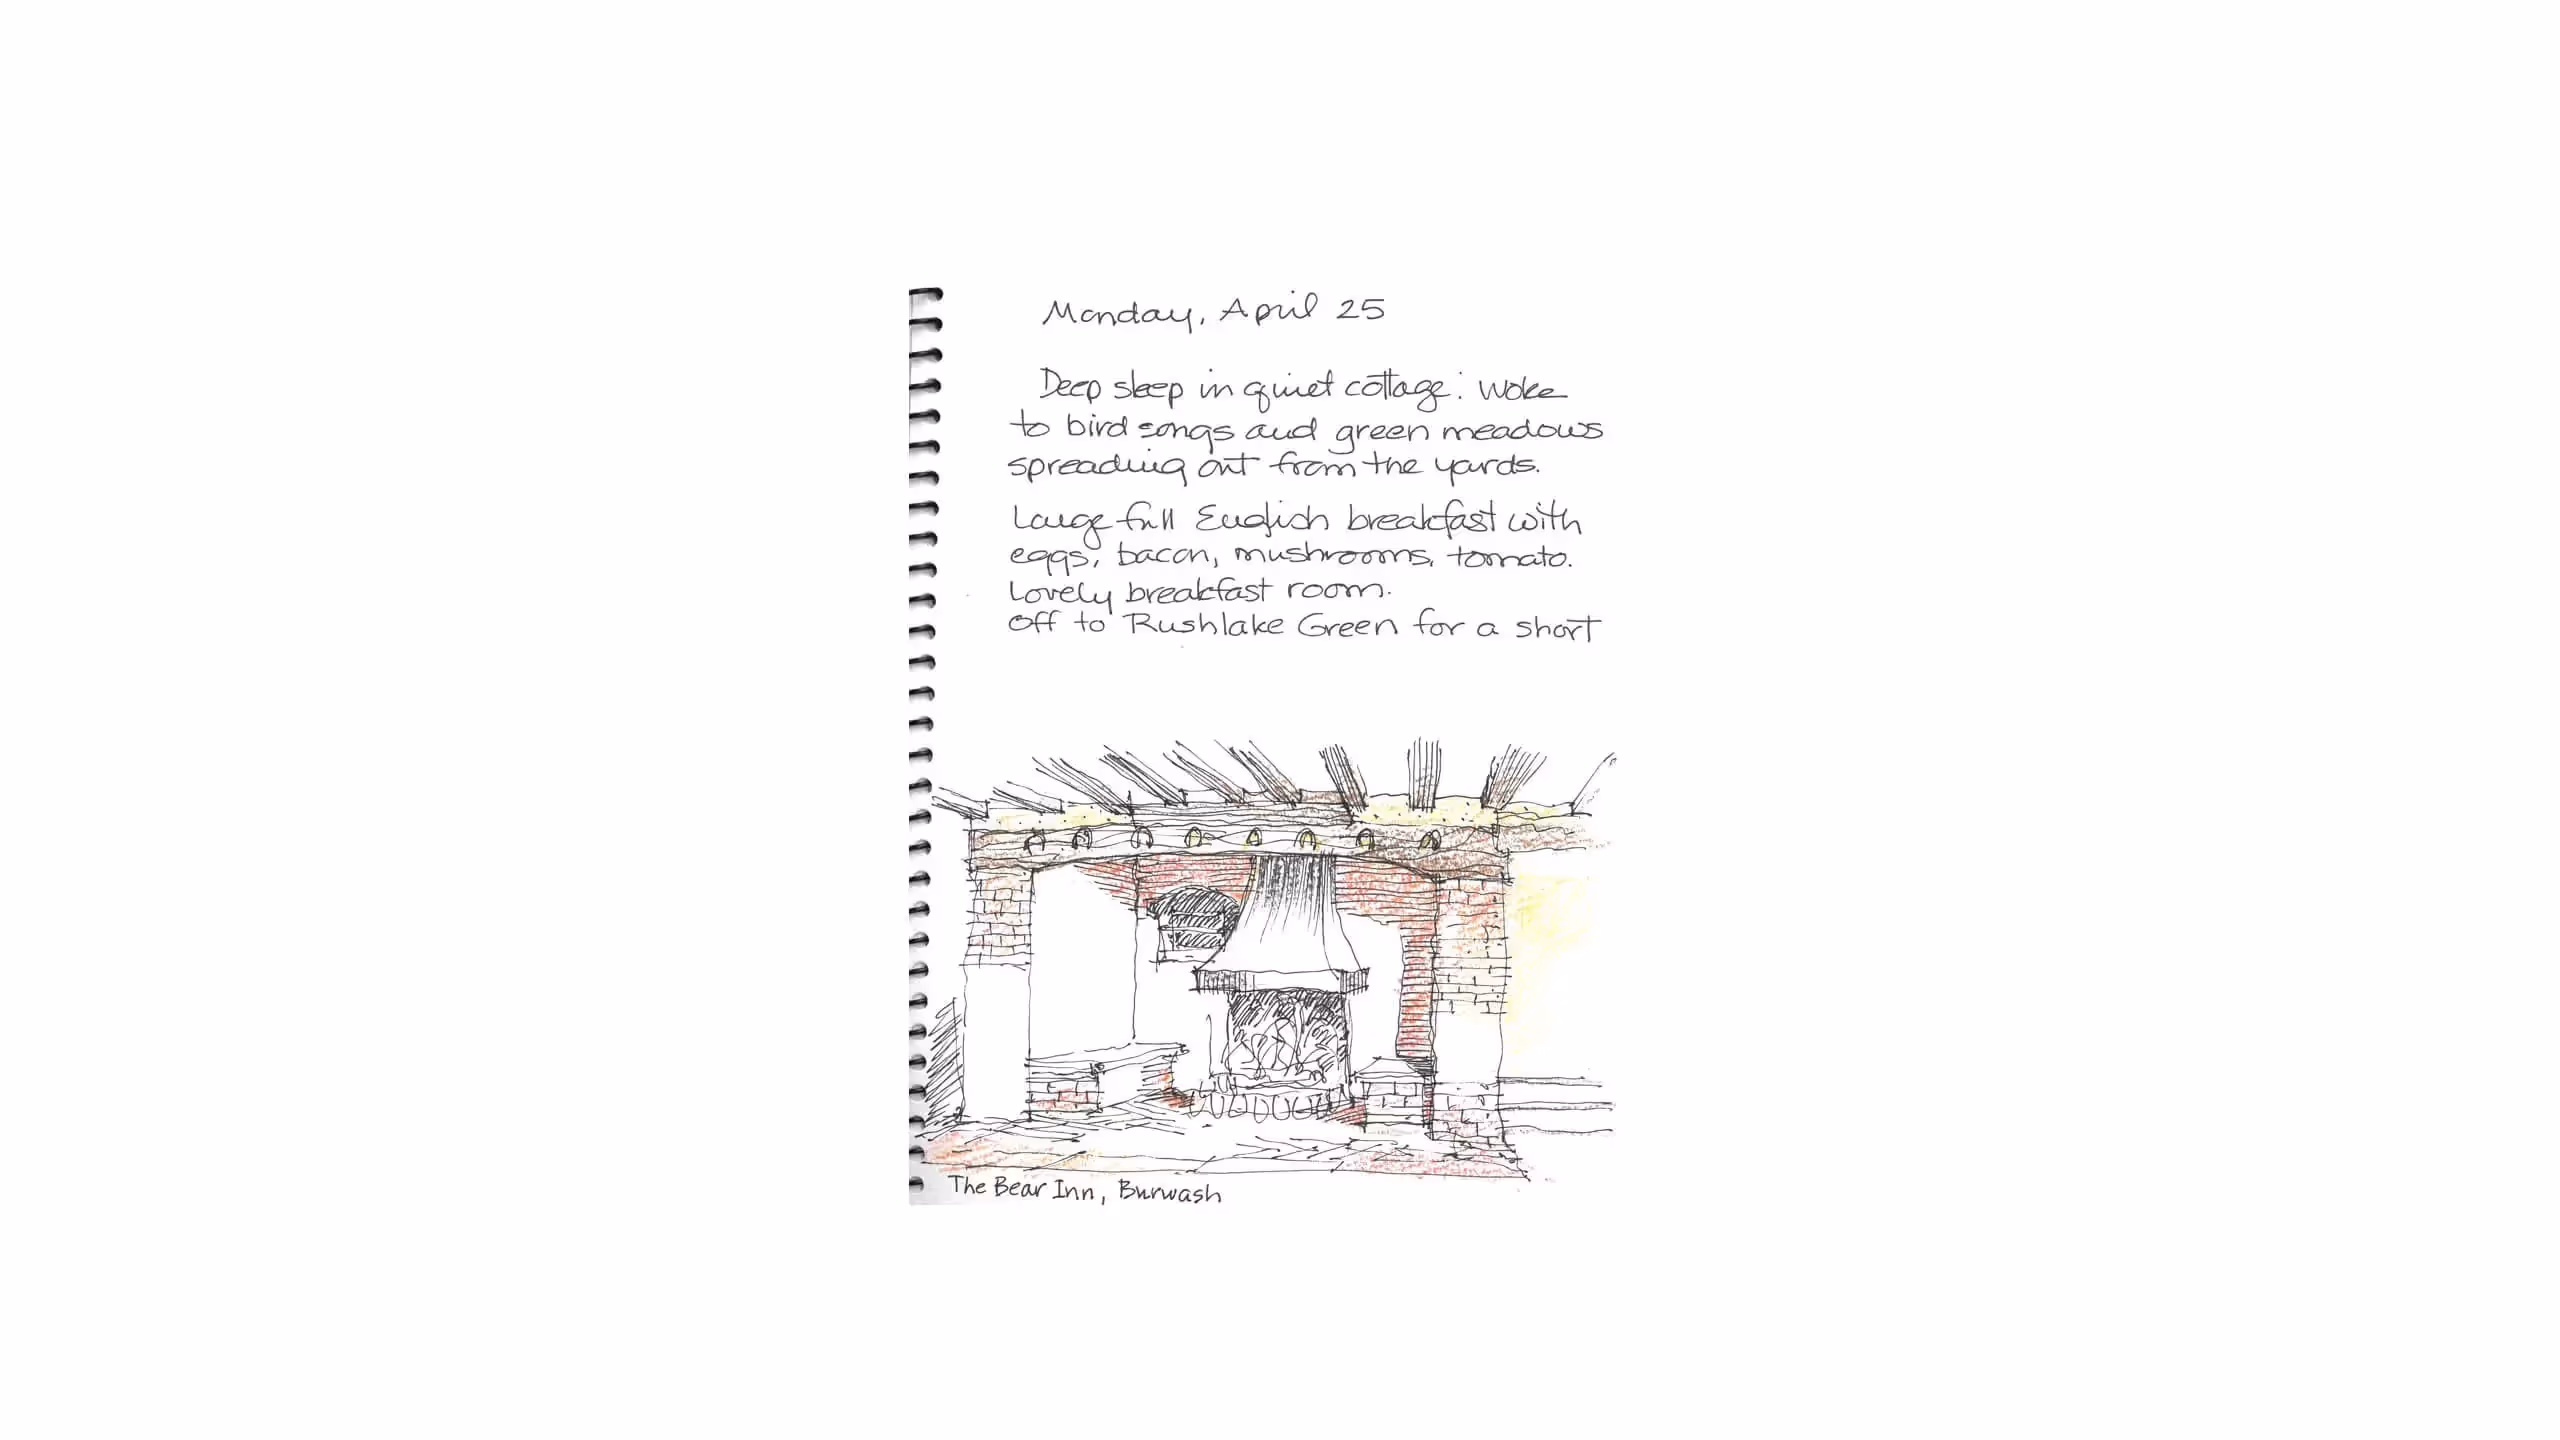 Monday, April 25
Deep sleep in quiet cottage. Woke
to bird songs and green meadows
spreading out from the yards.
Large full English breakfast with
eggs, bacon, mushrooms, tomato.
Lovely breakfast room.
Off to Rushlake Green for a short
The Bear Inn, Burwash